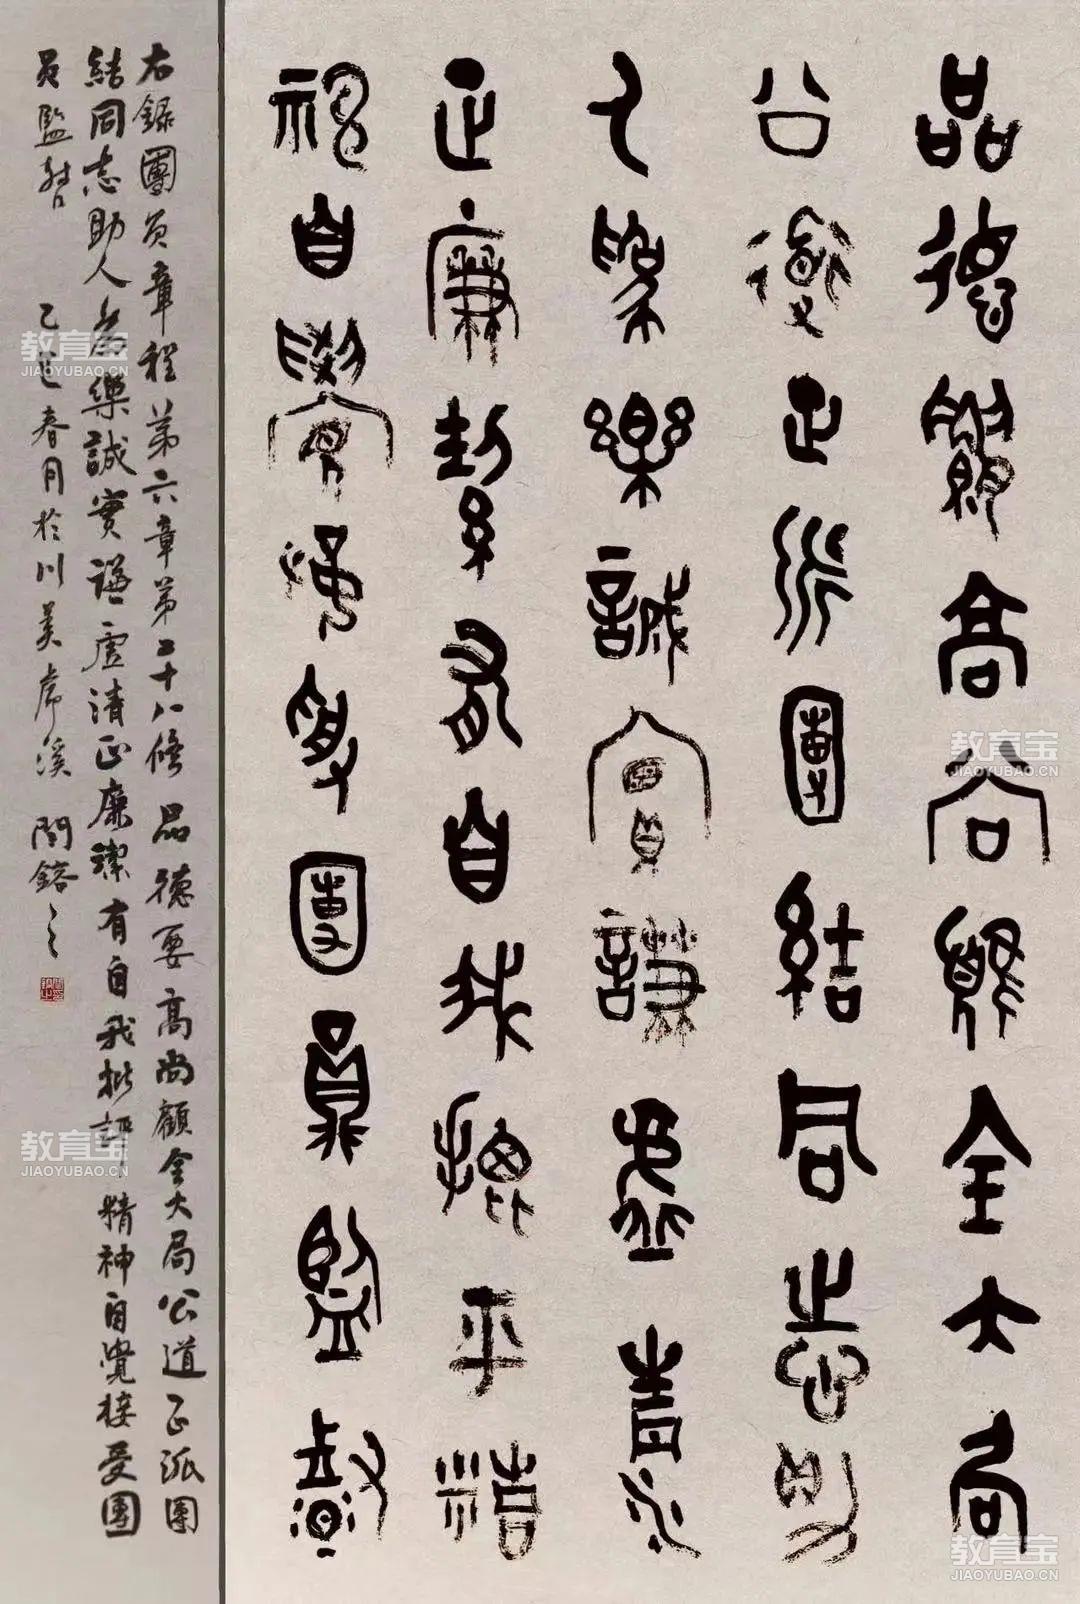 品德要高尚顧全大局
公道正派團結同志助
人為樂誠實謙虛清
正廉潔有自我批評精
神自覺接受團員監督
右録團員章程第六章第二十八條 品德要高尚顧全大局公道正派團
結同志助人為樂誠實謙虛清正廉潔有自我批評精神自覺接受團
員監督 乙巳春月於川美虎溪
教育宝
JIAOYUBAO.CN
教育宝
JIAOYUBAO.CN
教育宝
JIAOYUBAO.CN
教育宝
JIAOYUBAO.CN